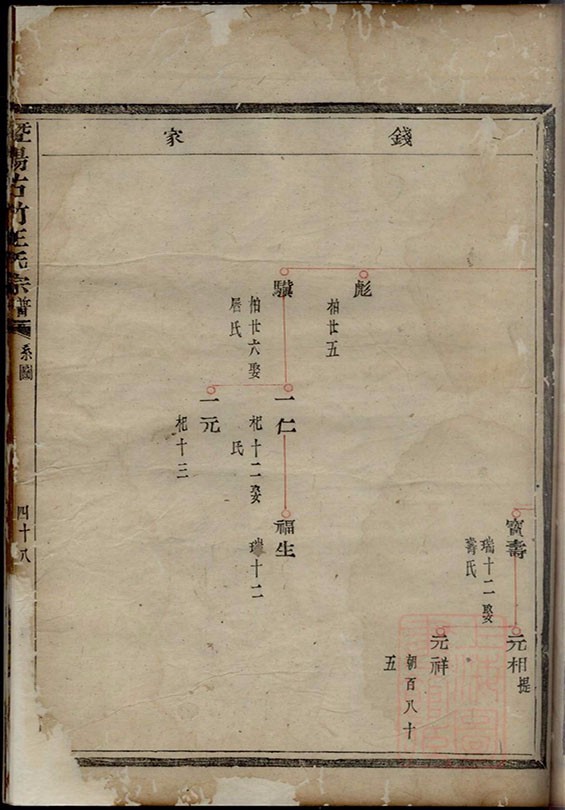 錢家
寶壽
瑞十二娶
蔣氏
元相
提
元祥
朝百八十
五
彪
柏廿五
驥
柏廿六娶
居氏
一仁
杞十二娶
氏
福生
瑞十二
一元
杞十三
暨陽古竹王氏宗譜
系圖
四十八